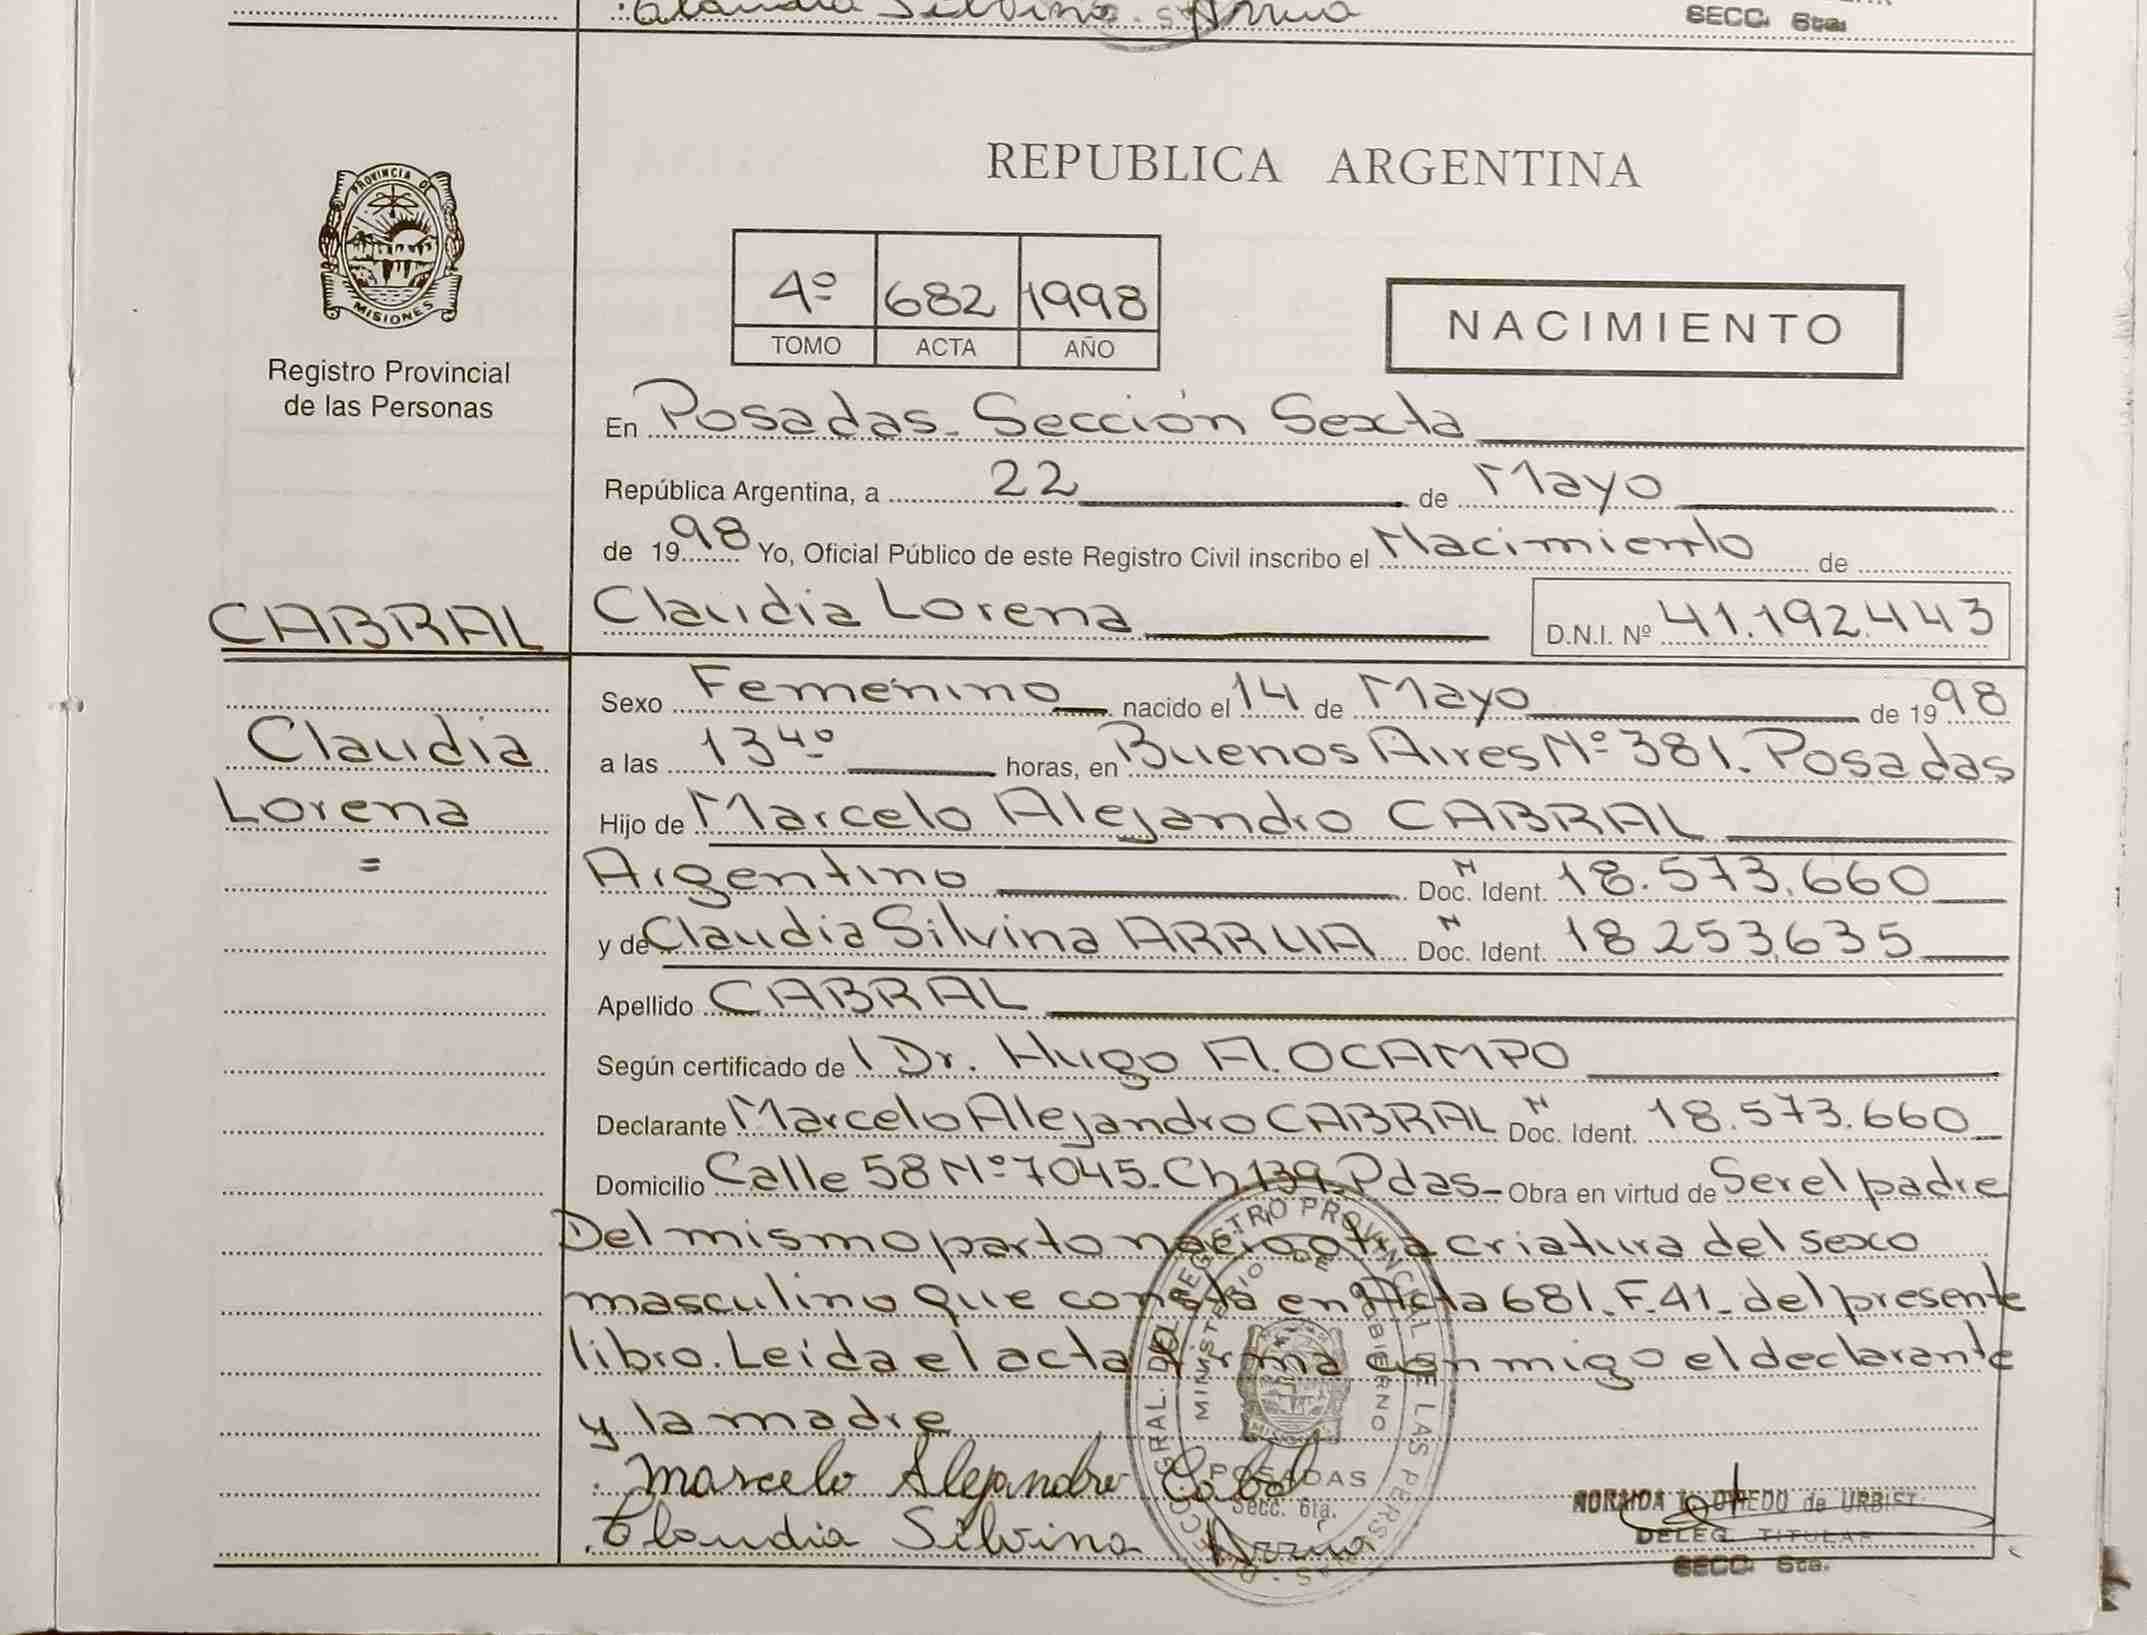 Claudia Silvina Arrua
SECC. 6ta.
PROVINCIA DE
MISIONES
Registro Provincial
de las Personas
REPUBLICA ARGENTINA
4º 682 1998
TOMO ACTA AÑO
NACIMIENTO
En Posadas - Sección Sexta
República Argentina, a 22 de Mayo
de 1998 Yo, Oficial Público de este Registro Civil inscribo el Nacimiento de
CABRAL Claudia Lorena D.N.I. Nº 41.192.443
Sexo Femenino nacido el 14 de Mayo de 1998
Claudia
Lorena
=
a las 13 40 horas, en Buenos Aires Nº 381. Posadas
Hijo de Marcelo Alejandro CABRAL
Argentino Doc. Ident. M 18.573.660
y de Claudia Silvina ARRUA Doc. Ident. M 18.253.635
Apellido CABRAL
Según certificado del Dr. Hugo A. OCAMPO
Declarante Marcelo Alejandro CABRAL Doc. Ident. M 18.573.660
Domicilio Calle 58 Nº 7045 - Ch 139 - Pdas - Obra en virtud de Ser el padre
Del mismo parto nacio otra criatura del sexo
masculino que consta en Acta 681 - F. 41 - del presente
libro. Leída el acta firma conmigo el declarante
y la madre
Marcelo Alejandro Cabral
Claudia Silvina Arrua
GRAL. DEL REGISTRO PROVINCIAL DE LAS PERSONAS
MINISTERIO DE GOBIERNO
POSADAS
Secc. 6ta.
OVIEDO de URBIST
DELEG. TITULAR
SECC. 6ta.